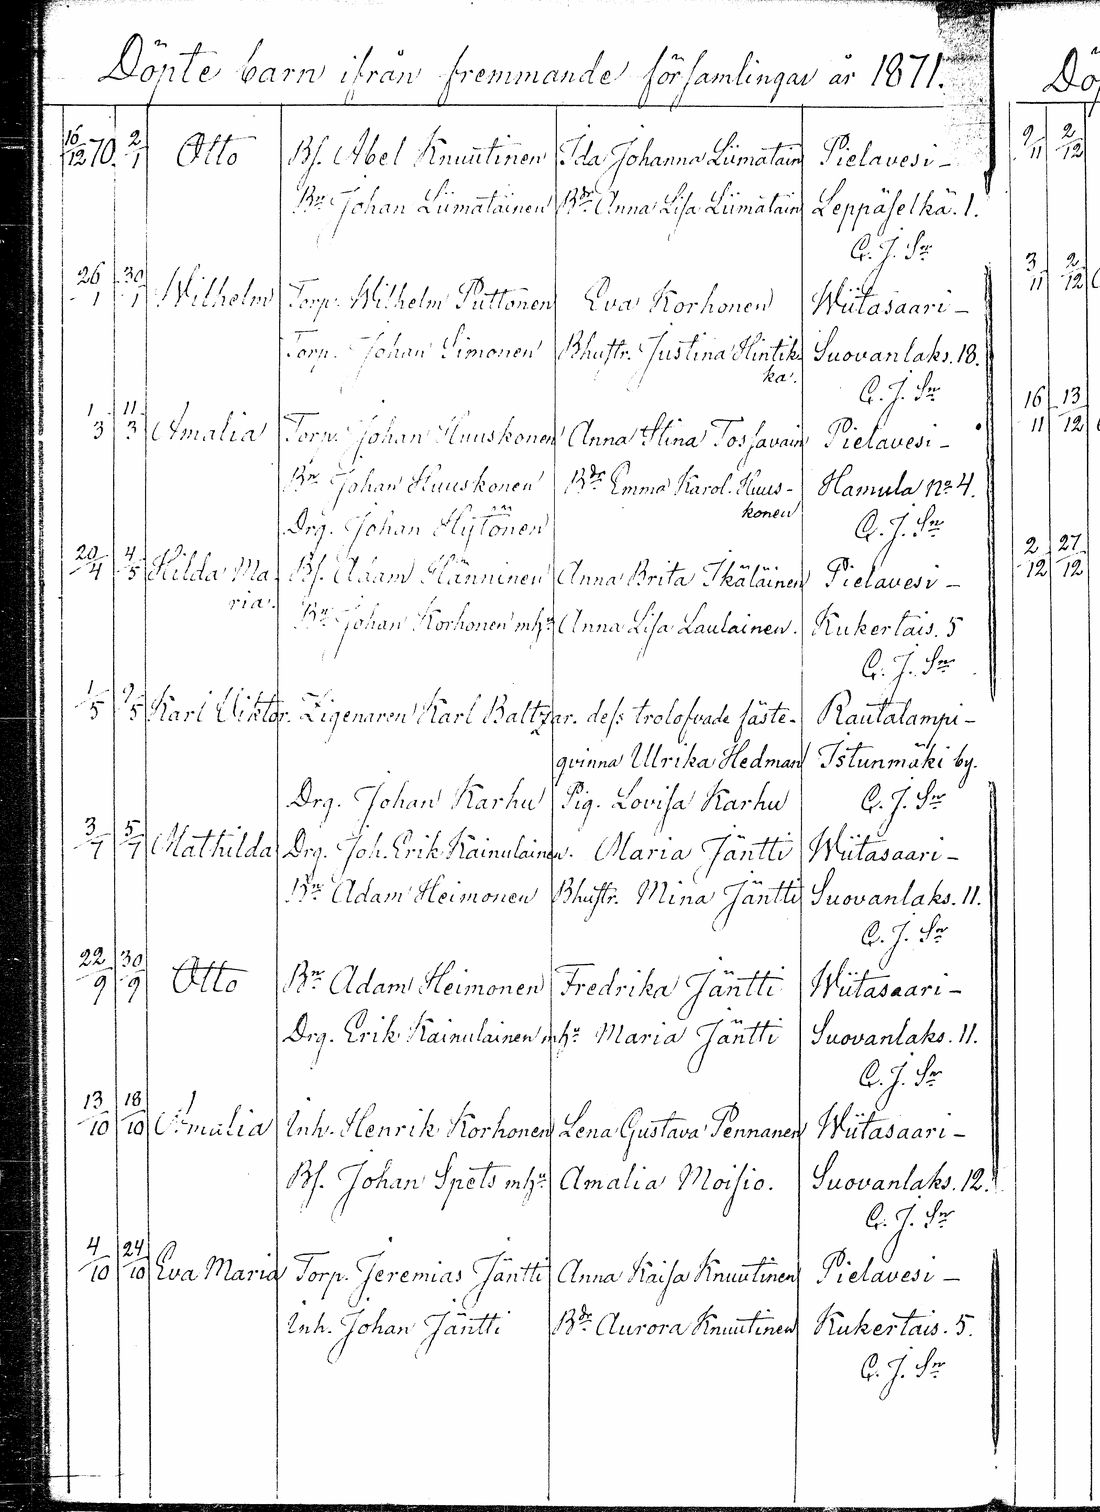 Döpte barn ifrån fremmande församlingar år 1871.
16/12 70. 2/1 Otto Bf. Abel Knuutinen Ida Johanna Liimatain Pielavesi –
Bn Johan Liimatainen Bdr Anna Lisa Liimatain Leppäselkä. 1.
C. J. Sn
26/1 30/1 Wilhelm Torp. Wilhelm Puttonen Eva Korhonen Wiitasaari –
Torp. Johan Simonen Bhustr. Justina Hintik- Suovanlaks. 18.
ka.
C. J. Sn
1/3 11/3 Amalia Torp. Johan Huuskonen Anna Stina Tossavain Pielavesi –
Bn Johan Huuskonen Bdr Emma Karol. Huus- Hamula No 4.
konen
Drg. Johan Hytönen C. J. Sn
20/4 4/5 Hilda Ma- Bf. Adam Hänninen Anna Brita Ikäläinen Pielavesi –
ria.
Bn Johan Korhonen mhu Anna Lisa Laulainen. Kukertais. 5
C. J. Sn
1/5 9/5 Karl Viktor. Zigenaren Karl Baltzar. dess trolofvade fäste- Rautalampi –
qvinna Ulrika Hedman Istunmäki by.
Drg. Johan Karhu Pig. Lovisa Karhu C. J. Sn
3/7 5/7 Mathilda Drg. Joh. Erik Kainulainen. Maria Jäntti Wiitasaari –
Bn Adam Heimonen Bhustr. Mina Jäntti Suovanlaks. 11.
C. J. Sn
22/9 30/9 Otto Bn Adam Heimonen Fredrika Jäntti Wiitasaari –
Drg. Erik Kainulainen mhu Maria Jäntti Suovanlaks. 11.
C. J. Sn
13/10 18/10 Amalia Inh. Henrik Korhonen Lena Gustava Pennanen Wiitasaari –
Bf. Johan Spets mhu Amalia Moisio. Suovanlaks. 12.
C. J. Sn
4/10 24/10 Eva Maria Torp. Jeremias Jäntti Anna Kaisa Knuutinen Pielavesi –
Inh. Johan Jäntti Bdr Aurora Knuutinen Kukertais. 5.
C. J. Sn
Dö
9/11 2/12
3/11 2/12
16/11 13/12
2/12 27/12